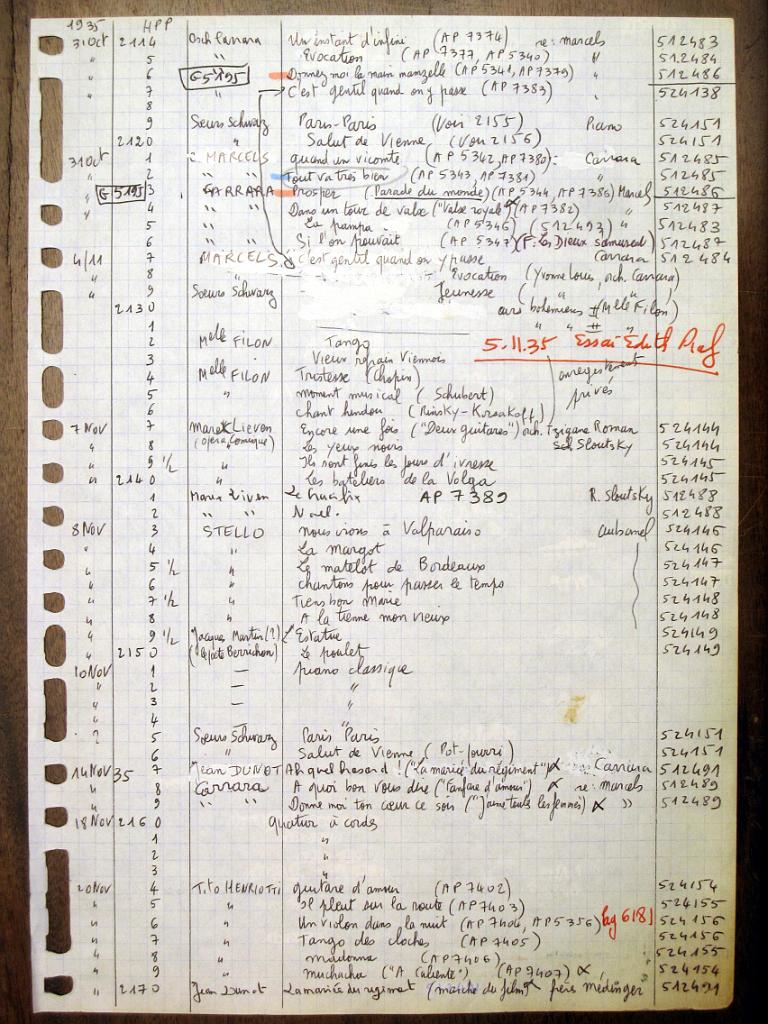 1935 HPP
31 Oct 2114 Orch Carrara Un instant d'infini (AP 7374) re: marcels 512483
" 5 " Evocation (AP 7377, AP 5340) " 512484
" 6 G5195 Donnez moi la main manzelle (AP 5341, AP 7373) " 512486
" 7 C'est gentil quand on y passe (AP 7383) " 524138
8
9 Sœurs Schwarz Paris-Paris (Voir 2155) Piano 524151
2120 " Salut de Vienne (Voir 2156) 524151
31 Oct 1 MARCELS quand un vicomte (AP 5342, AP 7380): Carrara 512485
" 2 " Tout va très bien (AP 5343, AP 7381) " 512485
G5195 3 CARRARA Prosper (Parade du monde) (AP 5344, AP 7386) Marcel 512486
4 " " Dans un tour de valse ("Valse royale") (AP 7382) " 512487
5 " " La pampa (AP 5346) (512493) " 512483
6 " " Si l'on pouvait (AP 5347) (F: Les Dieux s'amusent) 512487
4/11 7 MARCELS C'est gentil quand on y passe Carrara 512484
" 8 " Evocation (Yvonne Louis, orch. Carrara)
" 9 Sœurs Schwarz Jeunesse ( " " )
2130 airs bohemiens I (Melle Filon)
1 " " II "
2 Melle FILON Tango 5.11.35 Essai Edith Piaf
3 Vieux refrain Viennois
4 Melle FILON Tristesse (Chopin) enregistrement privés
5 " moment musical (Schubert)
6 chant hindou (Rimsky-Korsakoff)
7 Nov 7 Lieven (Opéra Comique) Encore une fois ("Deux guitares") orch. Tzigane Roman 524144
" 8 " Les yeux noirs Sloutsky 524144
" 9 1/2 " Ils sont finis les jours d'ivresse 524145
" 2140 " Les bateliers de la Volga 524145
1 Le Crucifix AP 7389 R. Sloutsky 512488
2 " " Noel. 512488
8 Nov 3 STELLO nous irons à Valparaiso aubanel 524146
" 4 " La margot 524146
" 5 1/2 " Le matelot de Bordeaux 524147
" 6 " chantons pour passer le temps 524147
" 7 1/2 " Tiens bon Marie 524148
" 8 " A la tienne mon vieux 524148
" 9 1/2 Jacques Martin (?) Estatue 524149
" 2150 Berrichon) Le poulet 524149
10 Nov 1 — piano classique
" 2 — "
" 3 — "
4 —
? 5 Sœurs Schwarz Paris Paris 524151
6 " Salut de Vienne (Pot-pourri) 524151
14 Nov 35 7 Jean DUNOT Ah quel hasard! ("La mariée du régiment") Carrara 512491
" 8 Carrara A quoi bon vous dire ("Fanfare d'amour") re: marcels 512489
" 9 " " Donne moi ton cœur ce soir ("J'aime toutes les femmes) " 512489
18 Nov 2160 quatuor à cordes
1 "
2 "
3 "
20 Nov 4 Tito HENRIOTTI guitare d'amour (AP 7402) 524154
" 5 " Il pleut sur la route (AP 7403) 524155
" 6 " Un violon dans la nuit (AP 7404, AP 5356) kg 6181 524156
" 7 " Tango des cloches (AP 7405) 524156
" 8 " madonna (AP 7406) 524155
" 9 " muchacha ("A Caliente") (AP 7407) 524154
" 2170 Jean Dunot La mariée du regiment (marche du film) frères Médinger 512491